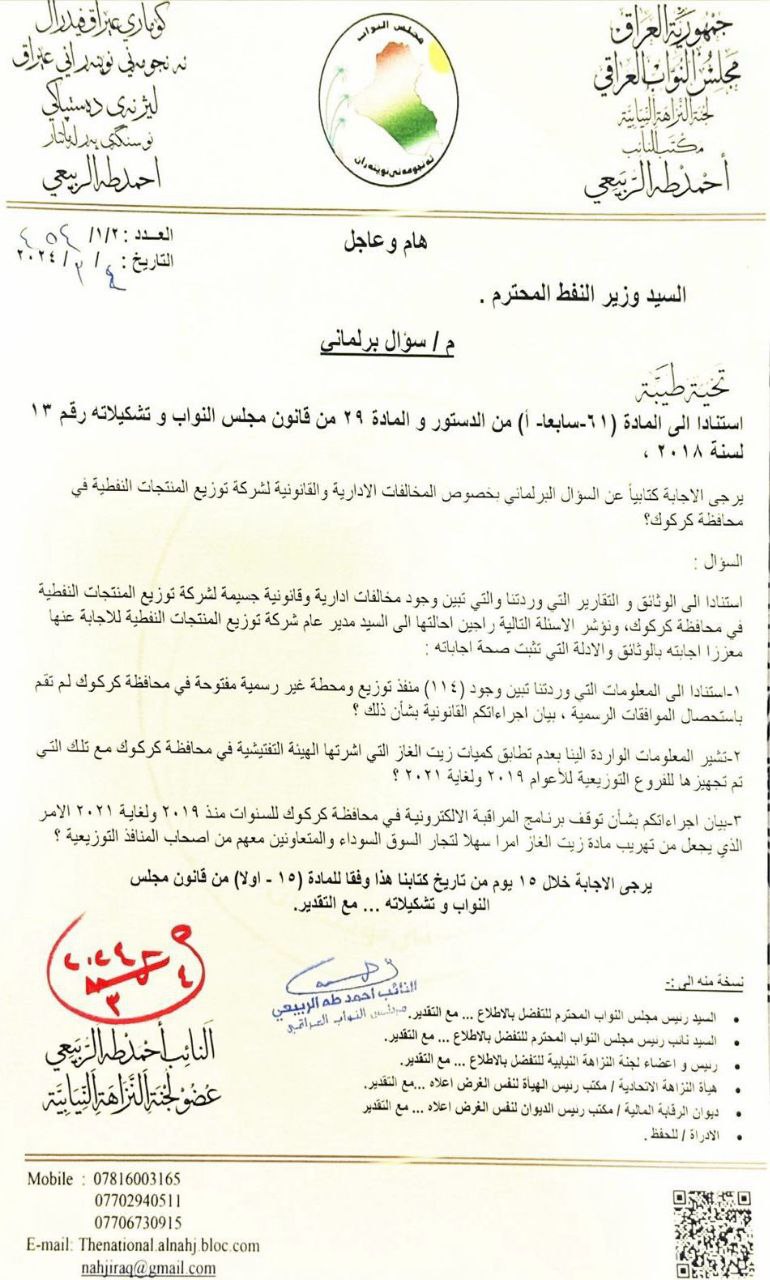 جمهورية العراق
مجلس النواب العراقي
لجنة النزاهة النيابية
مكتب النائب
أحمد طه الربيعي
مجلس النواب
ئه نجومه نى نوينه ران
كوماري عيراق فيدرال
ئه نجومه ني نوينه راني عيراق
ليژنه ى ده ستپاكي
احمد طه الربيعي
العدد : ١/٢/ ٤٥٤
التاريخ : ٤ / ٣ / ٢٠٢٤
هام وعاجل
السيد وزير النفط المحترم .
م / سؤال برلماني
تحية طيبة
استنادا الى المادة (٦١-سابعا- أ) من الدستور و المادة ٢٩ من قانون مجلس النواب و تشكيلاته رقم ١٣
لسنة ٢٠١٨ ،
يرجى الاجابة كتابياً عن السؤال البرلماني بخصوص المخالفات الادارية والقانونية لشركة توزيع المنتجات النفطية في
محافظة كركوك؟
السؤال :
استنادا الى الوثائق و التقارير التي وردتنا والتي تبين وجود مخالفات ادارية وقانونية جسيمة لشركة توزيع المنتجات النفطية
في محافظة كركوك، ونؤشر الاسئلة التالية راجين احالتها الى السيد مدير عام شركة توزيع المنتجات النفطية للاجابة عنها
معززا اجابته بالوثائق والادلة التي تثبت صحة اجاباته :
١-استنادا الى المعلومات التي وردتنا تبين وجود (١١٤) منفذ توزيع ومحطة غير رسمية مفتوحة في محافظة كركوك لم تقم
باستحصال الموافقات الرسمية ، بيان اجراءاتكم القانونية بشأن ذلك ؟
٢-تشير المعلومات الواردة الينا بعدم تطابق كميات زيت الغاز التي اشرتها الهيئة التفتيشية في محافظة كركوك مع تلك التي
تم تجهيزها للفروع التوزيعية للأعوام ٢٠١٩ ولغاية ٢٠٢١ ؟
٣-بيان اجراءاتكم بشأن توقف برنامج المراقبة الالكترونية في محافظة كركوك للسنوات منذ ٢٠١٩ ولغاية ٢٠٢١ الامر
الذي يجعل من تهريب مادة زيت الغاز امرا سهلا لتجار السوق السوداء والمتعاونين معهم من اصحاب المنافذ التوزيعية ؟
يرجى الاجابة خلال ١٥ يوم من تاريخ كتابنا هذا وفقا للمادة (١٥ - اولا) من قانون مجلس
النواب و تشكيلاته ... مع التقدير.
٢٠٢٤
٣
٤
النائب احمد طه الربيعي
مجلس النواب العراقي
النائب أحمد طه الربيعي
عضو لجنة النزاهة النيابية
نسخة منه الى :-
السيد رئيس مجلس النواب المحترم للتفضل بالاطلاع ... مع التقدير.
السيد نائب رئيس مجلس النواب المحترم للتفضل بالاطلاع ... مع التقدير.
رئيس و اعضاء لجنة النزاهة النيابية للتفضل بالاطلاع ... مع التقدير.
هيأة النزاهة الاتحادية / مكتب رئيس الهيأة لنفس الغرض اعلاه ...مع التقدير.
ديوان الرقابة المالية / مكتب رئيس الديوان لنفس الغرض اعلاه ... مع التقدير
الادراة / للحفظ .
Mobile : 07816003165
07702940511
07706730915
E-mail: Thenational.alnahj.bloc.com
nahjiraq@gmail.com